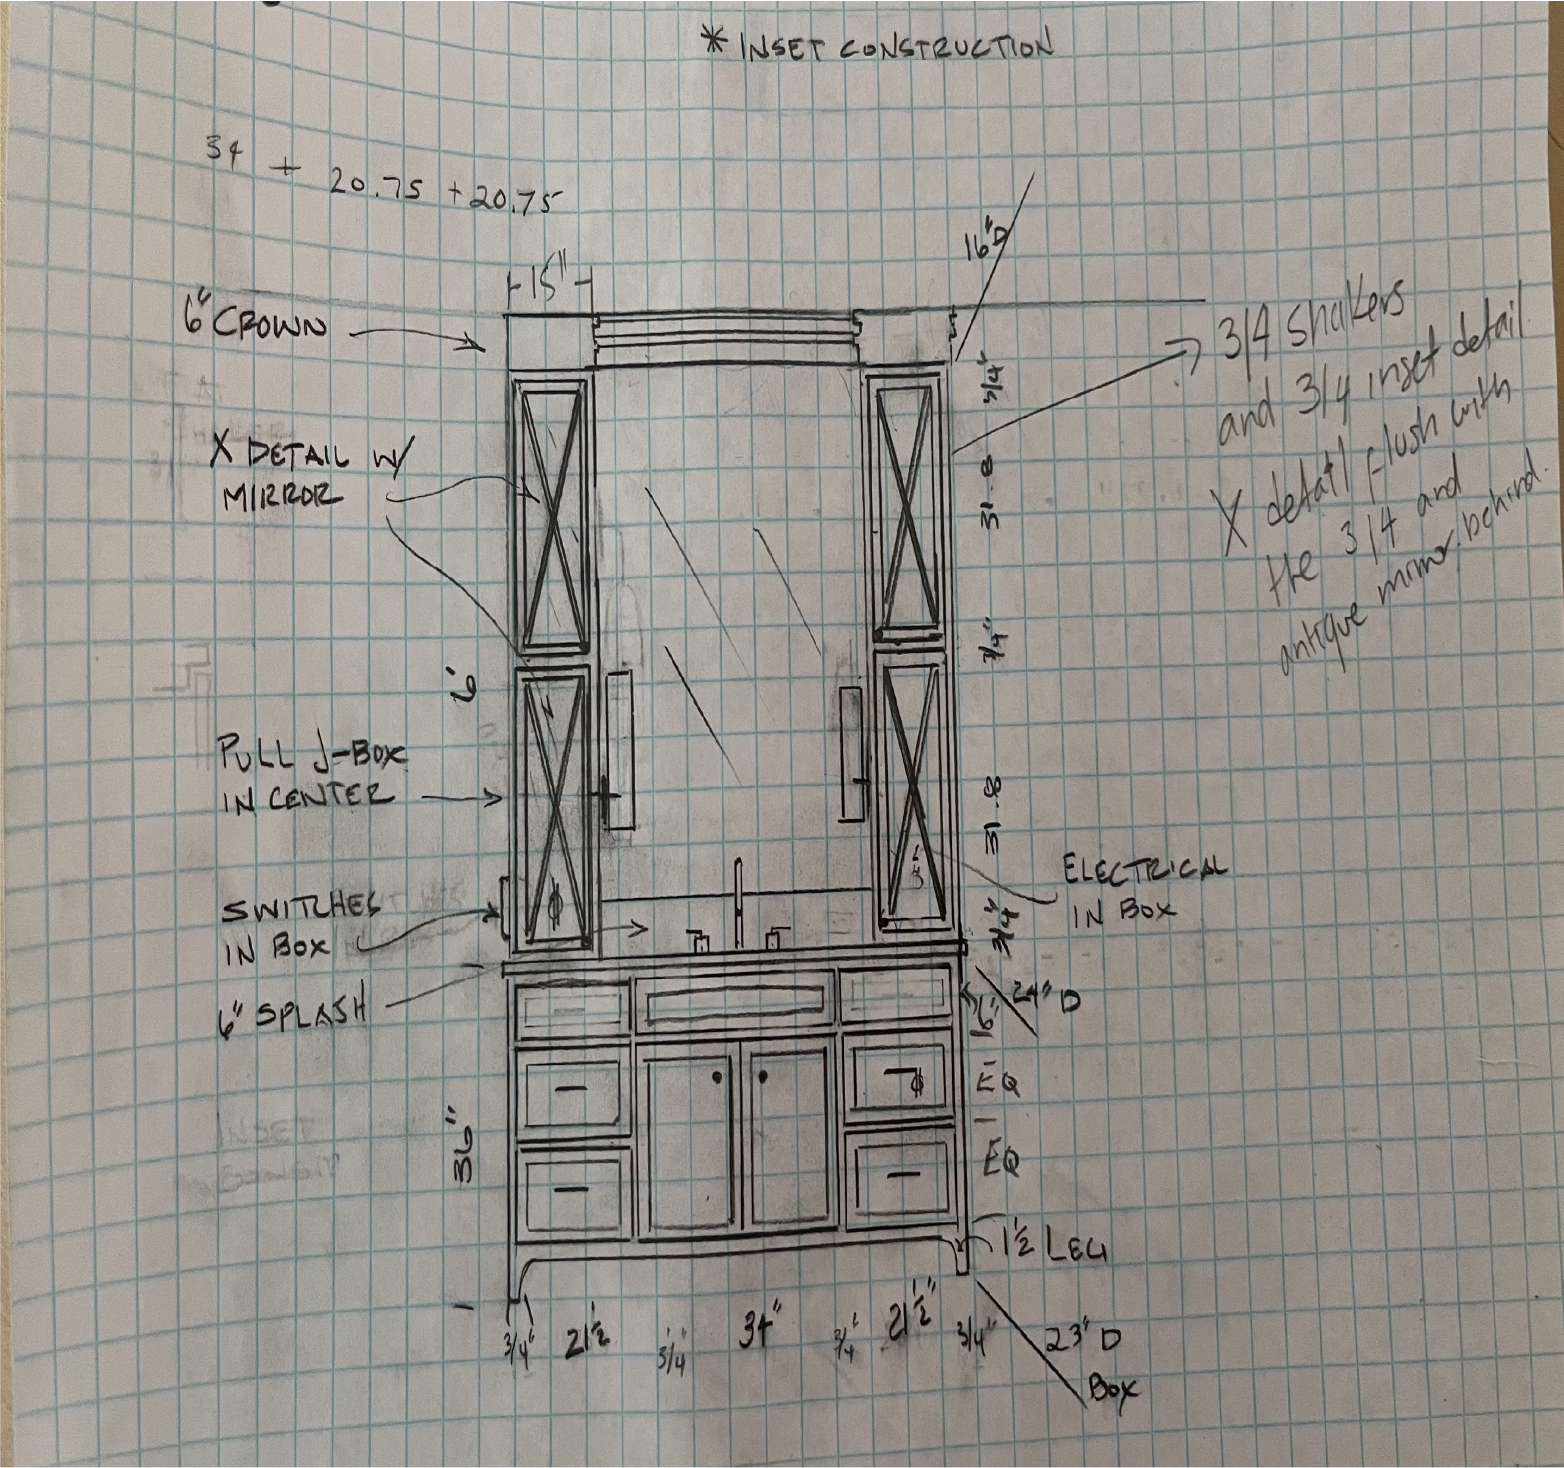 * INSET CONSTRUCTION
34 + 20.75 + 20.75
15"
16" D
6" CROWN
3/4 shakers
and 3/4 inset detail
X detail flush with
the 3/4 and
antique mirror behind.
3/4"
X DETAIL W/
MIRROR
31.8
3/4"
6'
PULL J-BOX
IN CENTER
31.8
ELECTRICAL
IN BOX
SWITCHES
IN BOX
3/4"
6" SPLASH
24" D
6"
EQ
36"
EQ
1 1/2 LEG
3/4"
21 1/2
3/4"
34"
3/4"
21 1/2"
3/4"
23" D
BOX